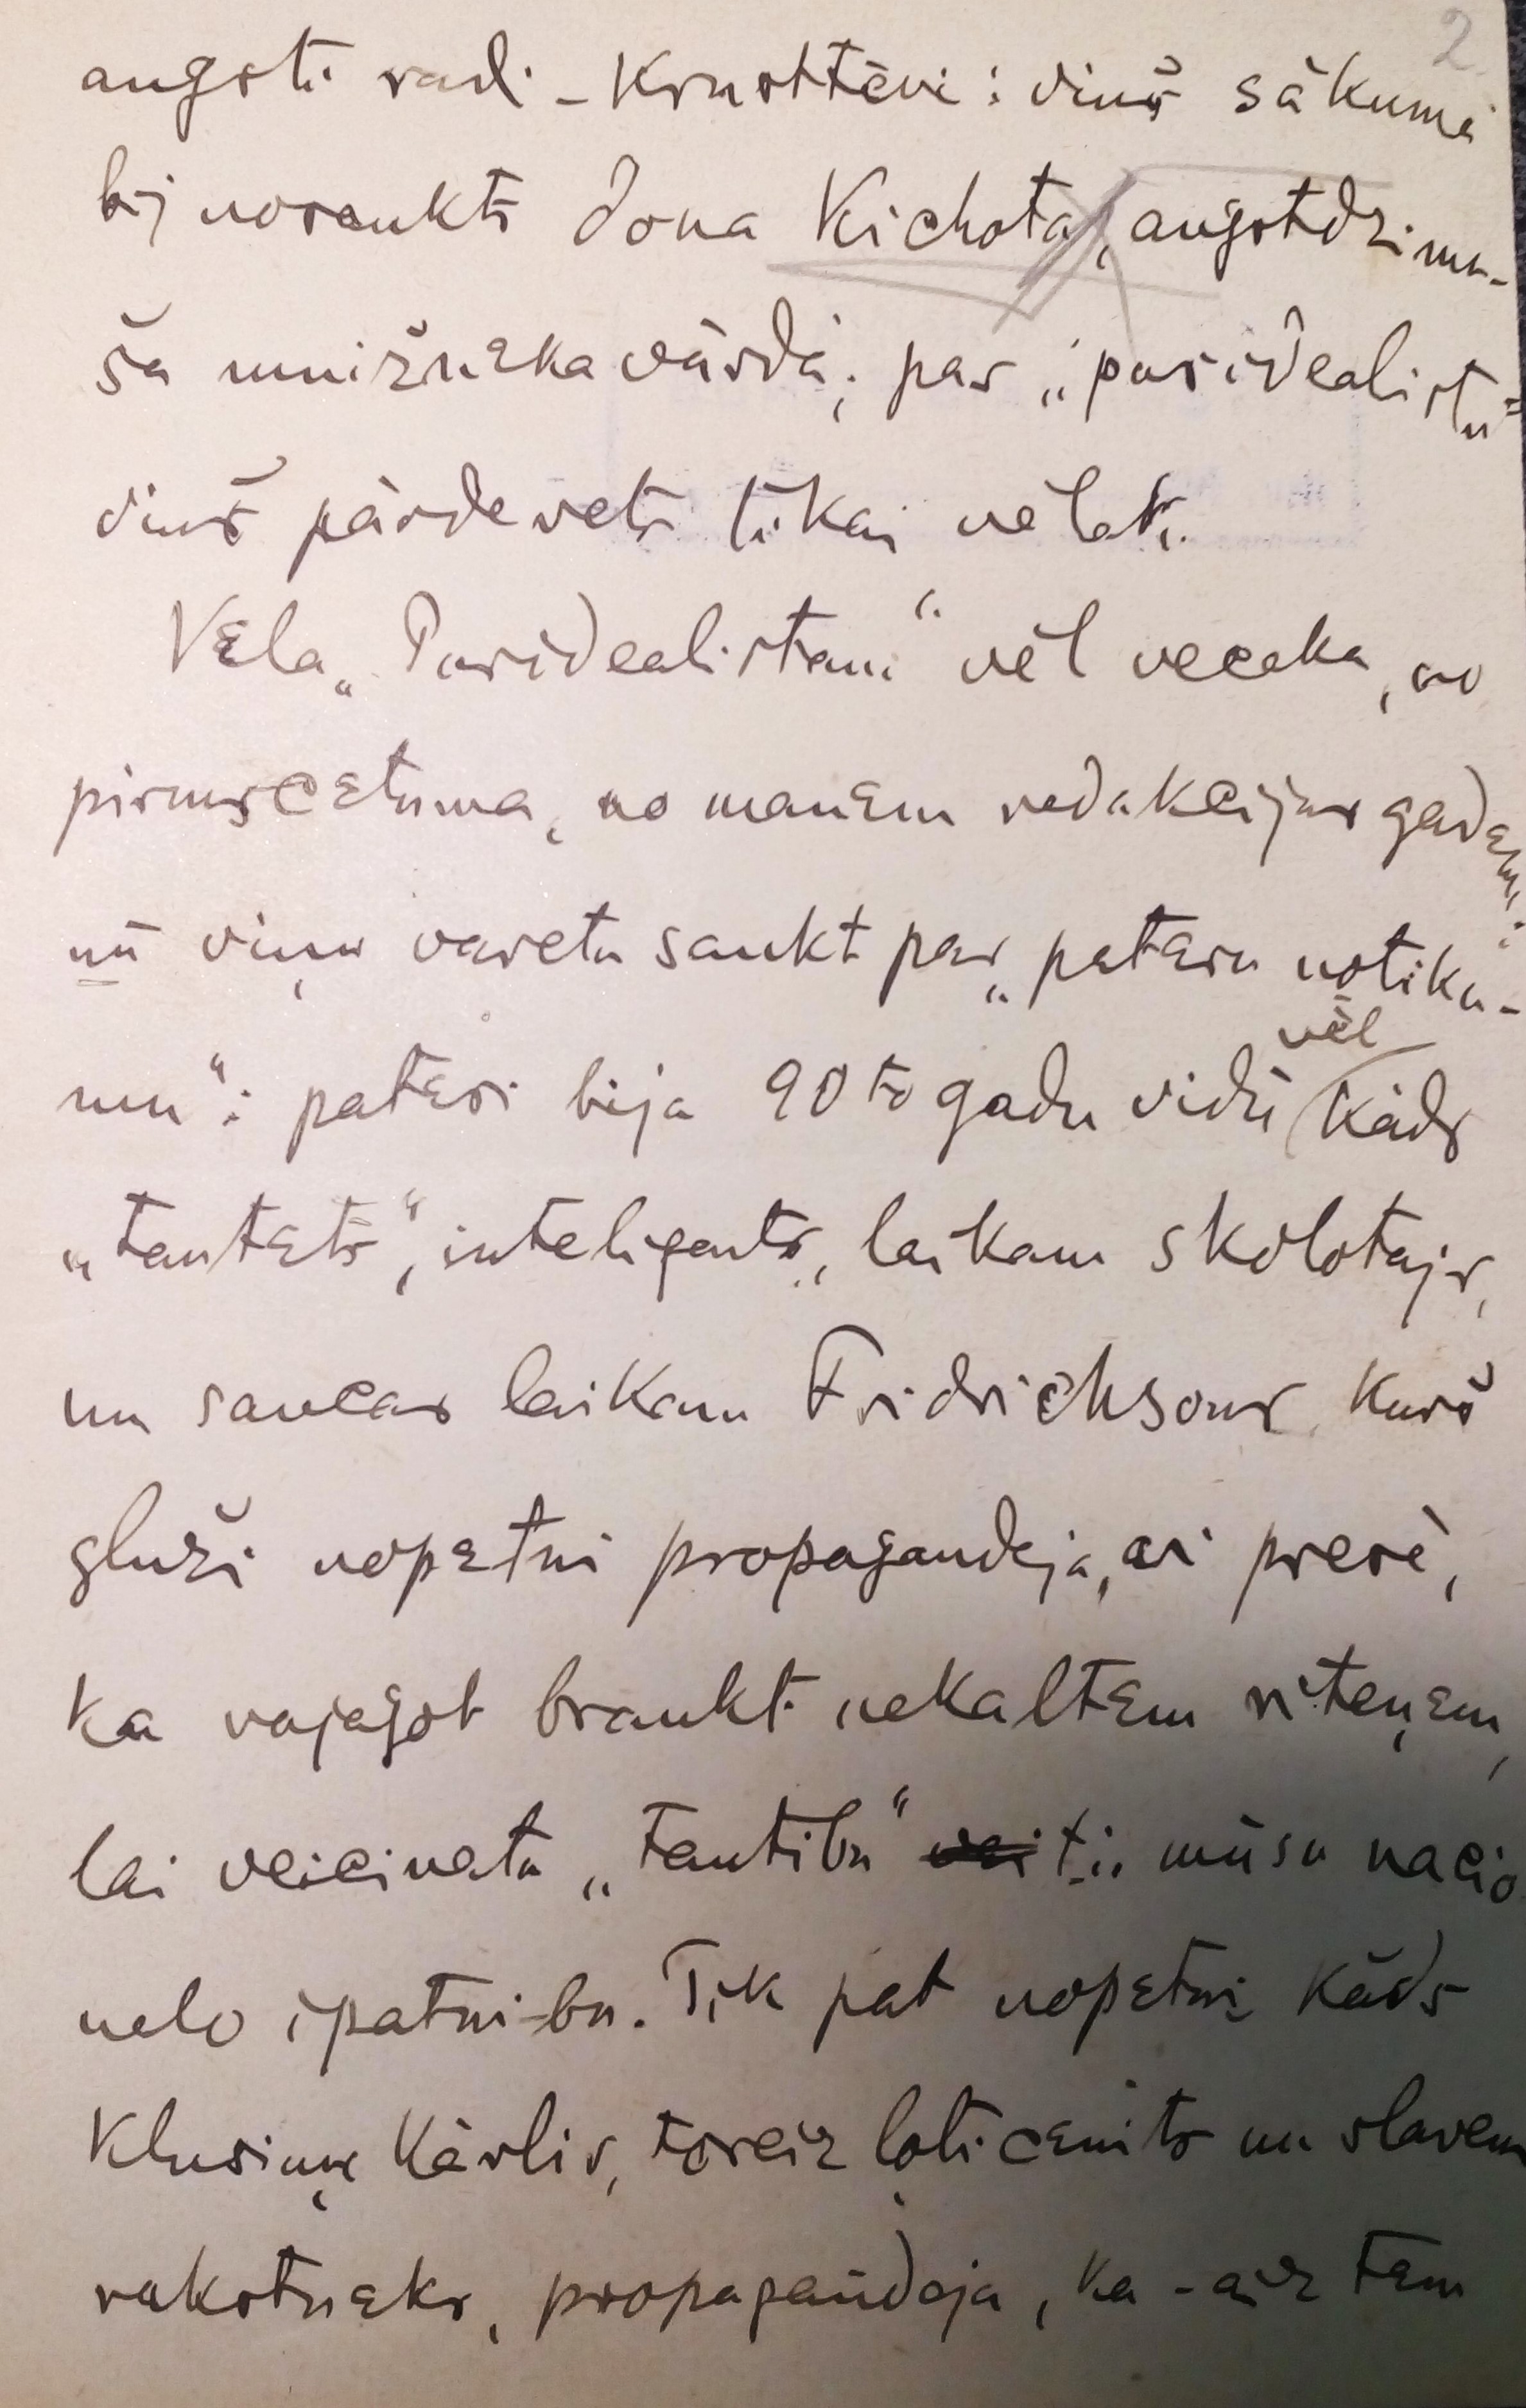 2
augsti rad. - Krusttēvi: viņš sākumā
bij nosaukts Dona Kichota, augstdzimu-
ša muižneka vārdā; par „puridealistu"
viņš pārdevets tikai vēlak.
Vela „Puridealistam" vēl vecaka, no
pirmscetuma, no manem redakcijas gadem:
nu viņu varetu saukt par „pateru notiku-
mu": pateri bija 90to gadu vidū vēl kāds
„tautets", inteligents, laikam skolotajs,
un saucas laikam Fridrichsons, kurš
gluži nopetni propagandeja, ari presē,
ka vajagot braukt nekaltem riteņem,
lai veicinatu „tautibu" ti. mūsu nacio
nelo ipatnibu. Tik pat nopetni kāds
Klusiņu Kārlis, toreiz ļoti cenits un slavens
rakstneks, propagandeja, ka - aiz tam